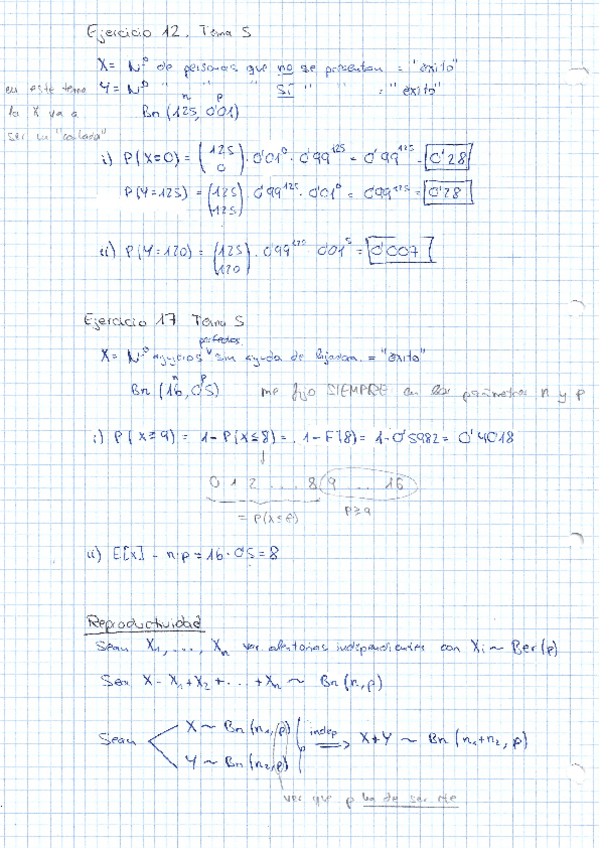 Ejercicio 12. Tema 5
X = Nº de personas que no se presentan = "éxito"
Y = Nº " " " SÍ " " = "éxito"
en este tema la X va a ser la
n p
Bn (125, 0'01)
i) P(X=0) = (125 0) · 0'01⁰ · 0'99¹²⁵ = 0'99¹²⁵ = 0'28
P(Y=125) = (125 125) 0'99¹²⁵ · 0'01⁰ = 0'99¹²⁵ = 0'28
ii) P(Y=120) = (125 120) · 0'99¹²⁰ 0'01⁵ = 0'007
Ejercicio 17 Tema 5
perfectos
X = Nº sin ayuda de = "éxito"
n p
Bn (16, 0'5) me fijo SIEMPRE en los parámetros n y p
i) P(X≥9) = 1-P(X≤8) = 1-F(8) = 1-0'5982 = 0'4018
↓
0 1 2 ... 8 9 ... 16
= P(X≤8) P≥9
ii) E[X] = n·p = 16·0'5 = 8
Reproductividad
Sean X₁, ..., Xn var aleatorias independientes con Xi ~ Ber(p)
Sea X = X₁+X₂+...+Xn ~ Bn(n,p)
Sean X ~ Bn(n₁,p) Y ~ Bn(n₂,p) indep ⟹ X+Y ~ Bn(n₁+n₂, p)
ver que p ha de ser cte